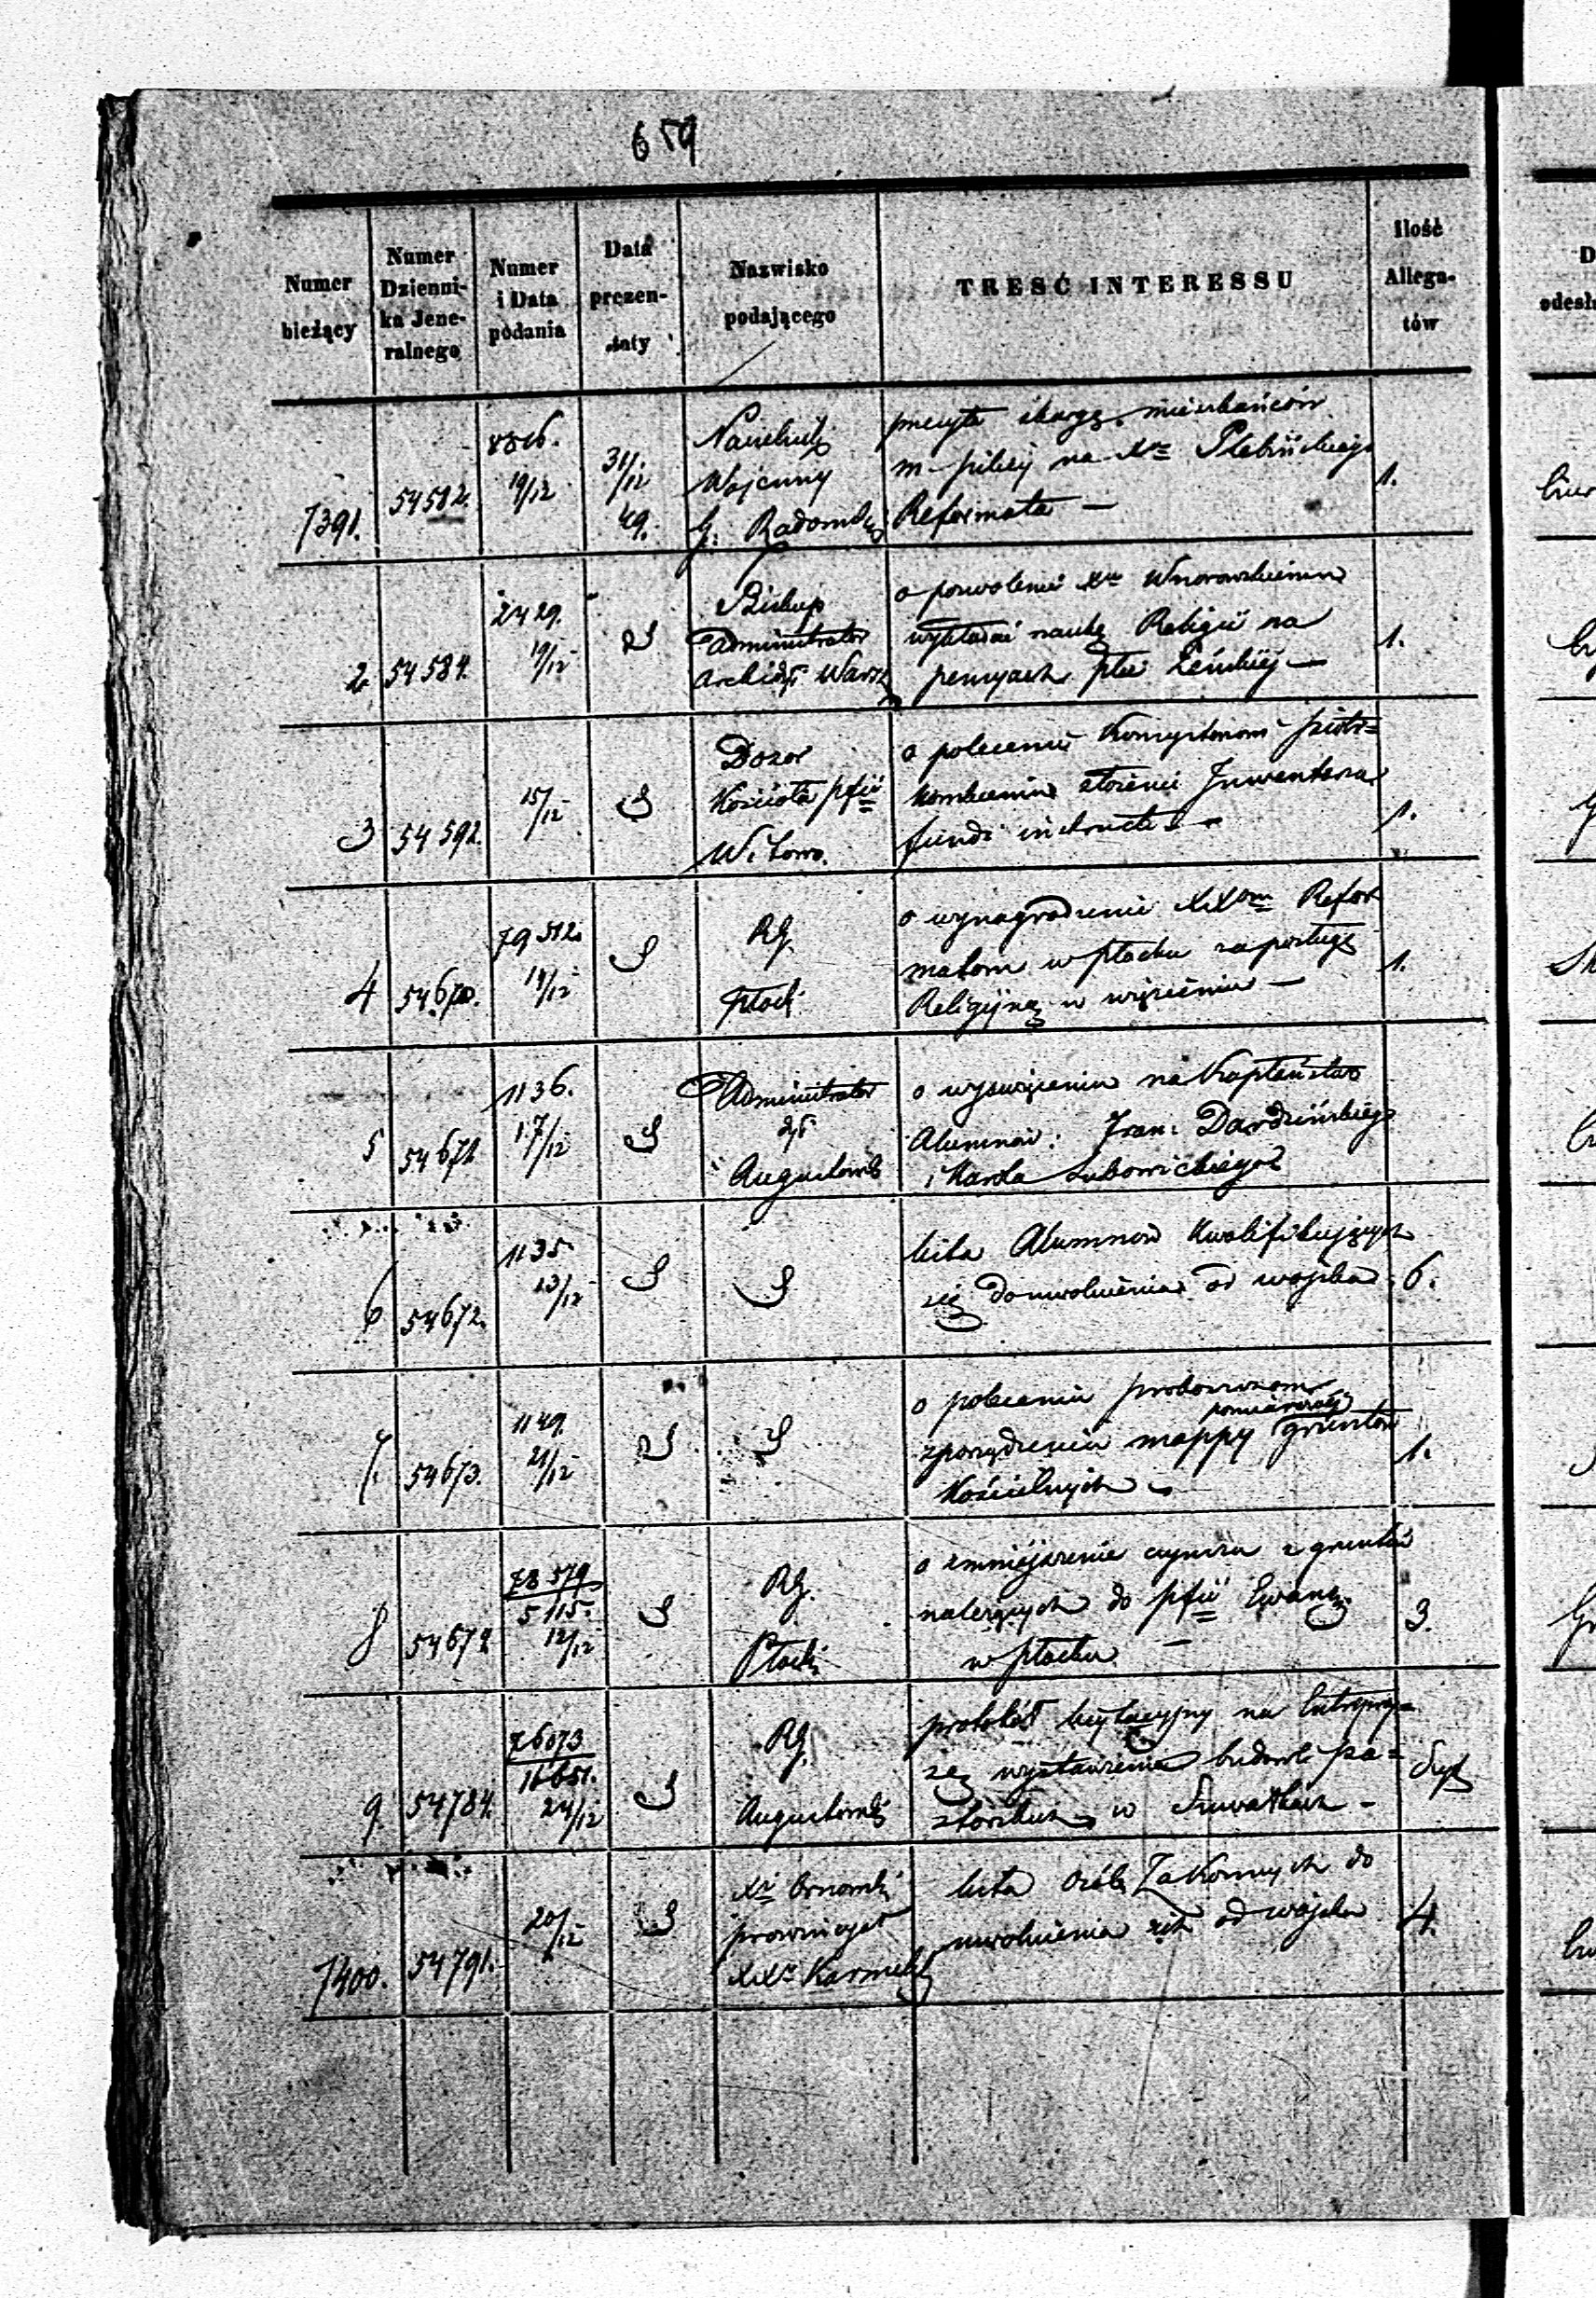 659
Numer bieżący
Numer Dzienni- ka Jene- ralnego
Numer i Data podania
Data prezen- taty
Nazwisko podającego
TRESĆ INTERESSU
Ilość Allega- tów
7391. 54582. 19/12 31/12 49. 1.
Naczelnik
Wojenny
G. Radomsk
skargę mieszkańców
m. pilicy na
Reformata —
2 54584. 2429. 19/12 1.
Biskup
Administrator
Archid. Warsz
o pozwolenie Wnorowskiemu
wykładać naukę Religii na
pensyach płci żeńskiej —
3 54592. 15/12 1.
Dozor
Kościoła pfii
Witowo.
o polecenie Konsystorzowi
złożenie Inwentarza
fundi instructi
4 54670. 79512. 19/12 1.
RG.
Płock
o wynagrodzenie XXom Refor
matom w Płocku za posługę
Religijną w więzieniu —
5 54671 1136. 17/12
Administrator
Augustowsk
o wyswięceniu na Kapłaństwo
Alumnów: Fran: Dardzińskiego
i Karola Lubowickiego
6 54672. 1135 13/12 6.
lista Alumnów Kwalifikujących
się do uwolnienia od wojska
7. 54673. 1149. 21/12 1.
o poleceniu proboszczom
sporządzenie mappy gruntów
Kościelnych
8 54674 78579 5115. 12/12 3.
RG.
Płock
o zmniejszenie czynszu z gruntów
należących do pfii Ewang.
w Płocku —
9. 54784. 76073 16651. 24/12
RG.
Augustowsk
protokół licytacyjny na
wystawienia budowli pa=
storskich w Suwałkach —
7400. 54791. 20/12 4.
prowincyał
XXr Karmelit
lista osób Zakonnych do
uwolnienia ich od wojska